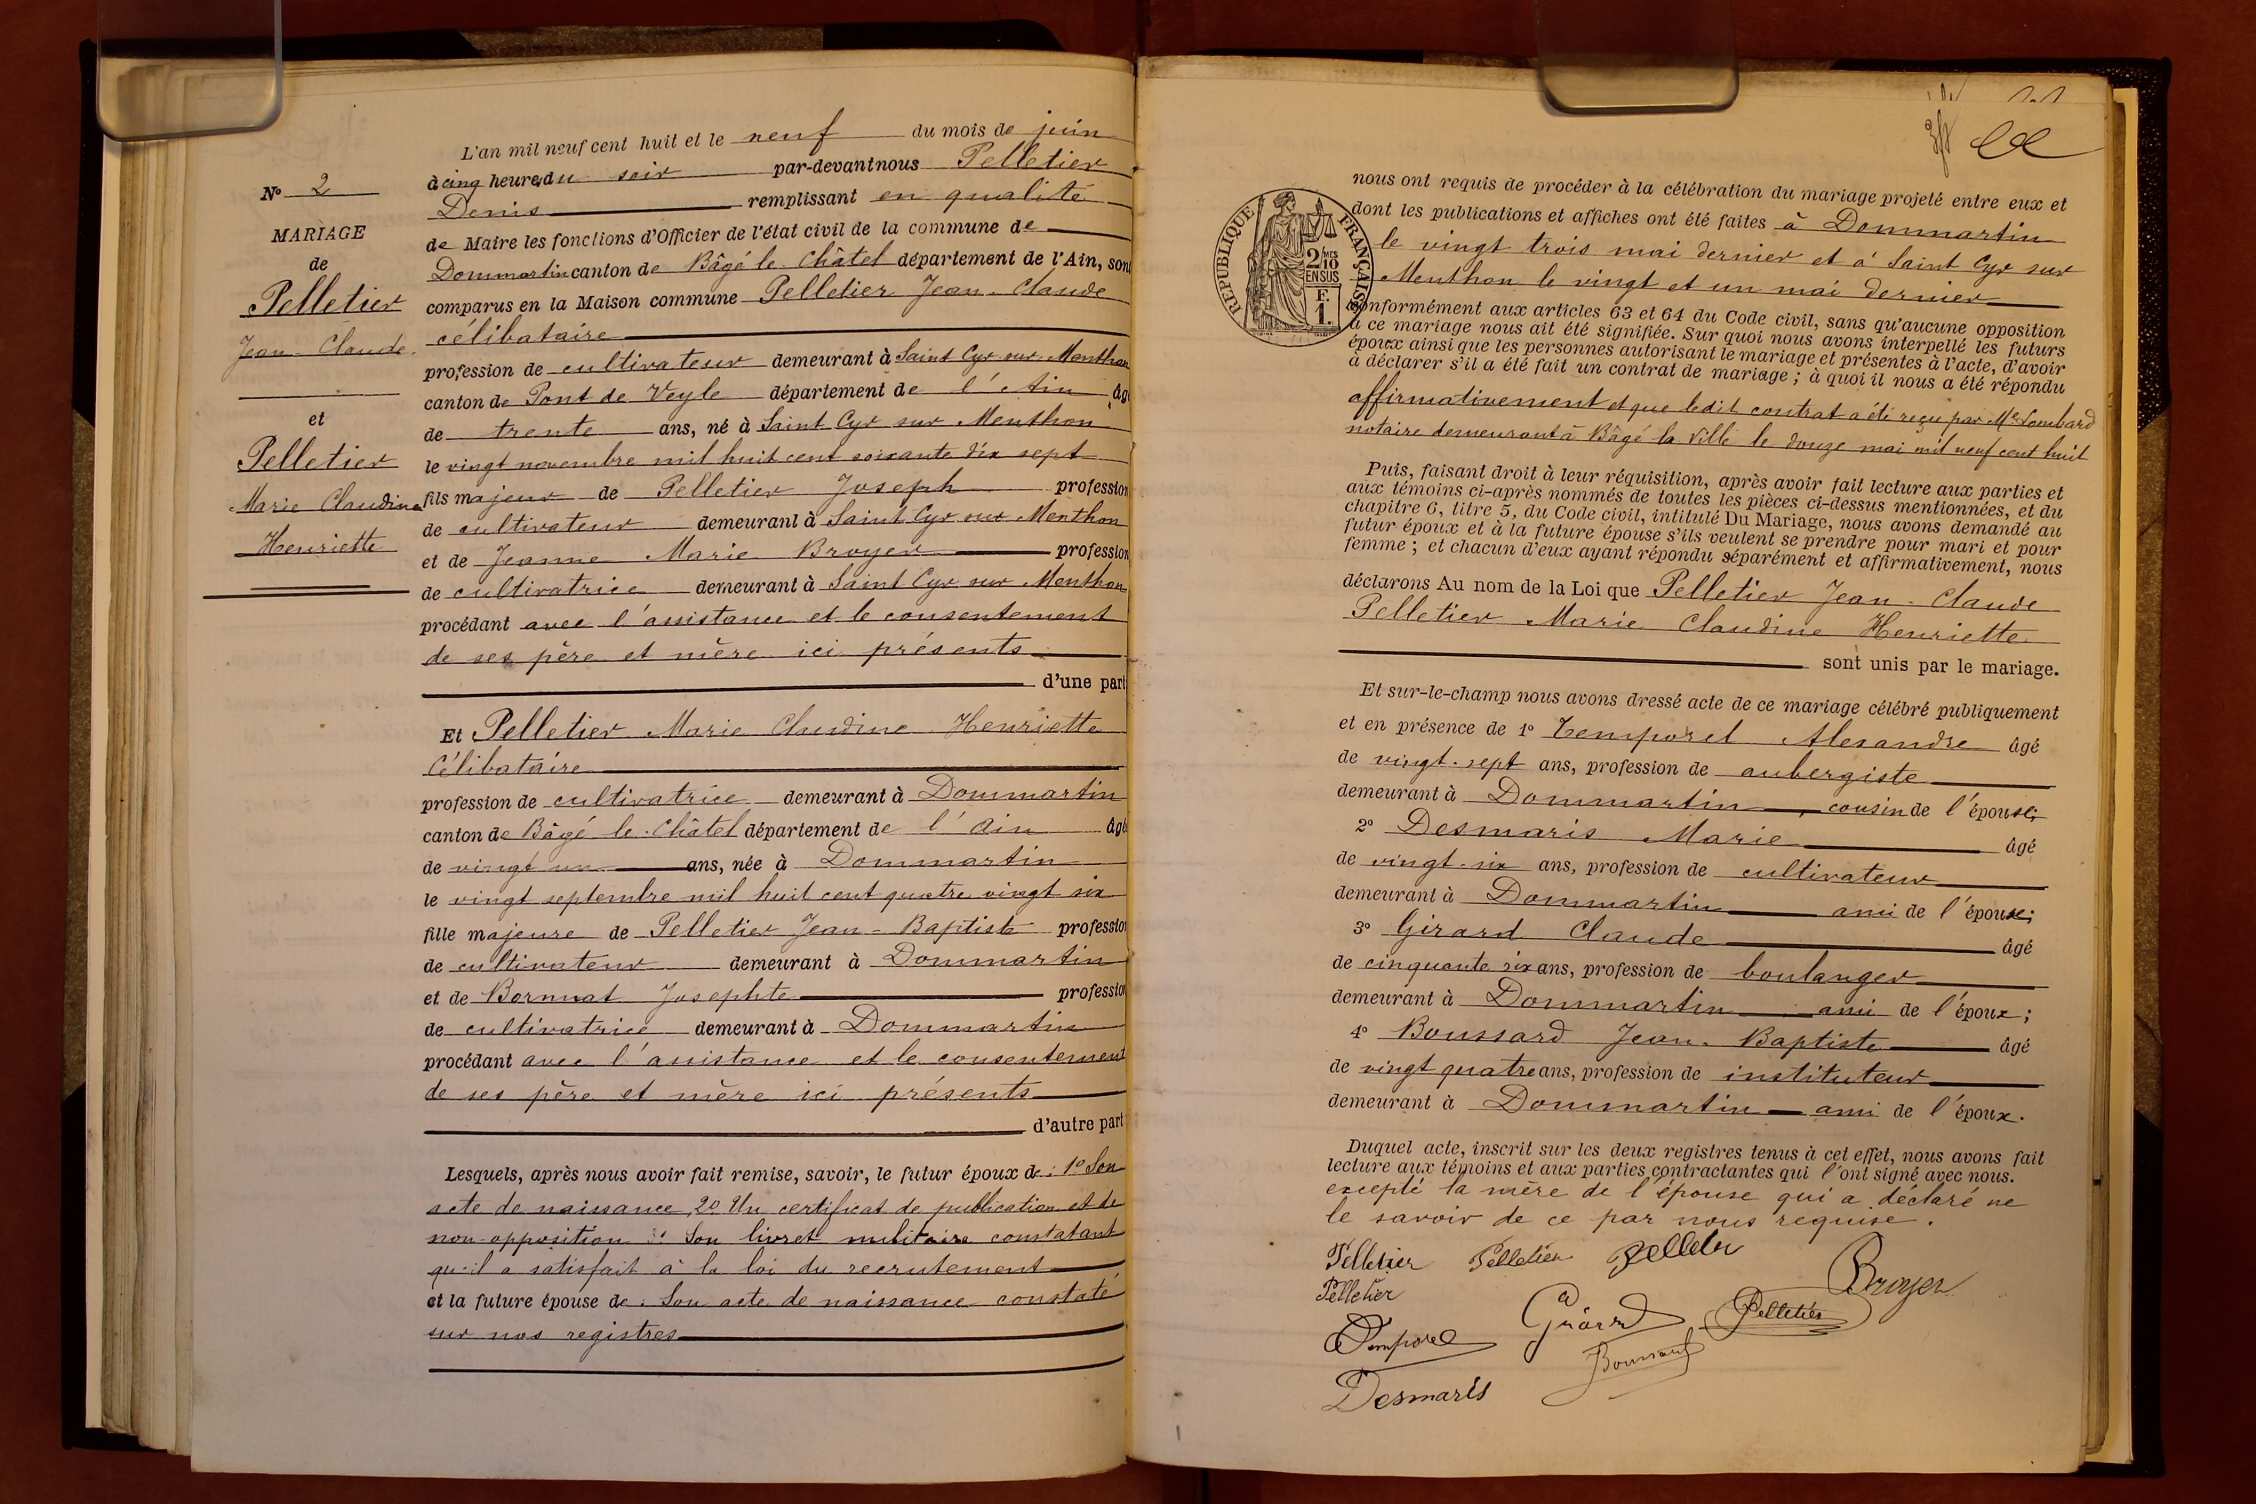 N° 2
MARIAGE
de
Pelletier
Jean-Claude
et
Pelletier
Marie Claudine
Henriette
L'an mil neuf cent huit et le neuf du mois de juin
à cinq heures du soir par-devant nous Pelletier
Denis remplissant en qualité
de Maire les fonctions d'Officier de l'état civil de la commune de
Dommartin canton de Bâgé le Châtel département de l'Ain, sont
comparus en la Maison commune Pelletier Jean-Claude
célibataire
profession de cultivateur demeurant à Saint Cyr sur Menthon
canton de Pont de Veyle département de l'Ain âgé
de trente ans, né à Saint Cyr sur Menthon
le vingt novembre mil huit cent soixante dix sept
fils majeur de Pelletier Joseph profession
de cultivateur demeurant à Saint Cyr sur Menthon
et de Jeanne Marie Broyer profession
de cultivatrice demeurant à Saint Cyr sur Menthon
procédant avec l'assistance et le consentement
de ses père et mère ici présents
d'une part
Et Pelletier Marie Claudine Henriette
Célibataire
profession de cultivatrice demeurant à Dommartin
canton de Bâgé le Châtel département de l'Ain âgé
de vingt un ans, née à Dommartin
le vingt septembre mil huit cent quatre vingt six
fille majeure de Pelletier Jean-Baptiste profession
de cultivateur demeurant à Dommartin
et de Bornuat Josephte profession
de cultivatrice demeurant à Dommartin
procédant avec l'assistance et le consentement
de ses père et mère ici présents
d'autre part
Lesquels, après nous avoir fait remise, savoir, le futur époux de : 1° Son
acte de naissance 2° Un certificat de publication et de
non-opposition 3° Son livret militaire constatant
qu'il a satisfait à la loi du recrutement
et la future épouse de : Son acte de naissance constaté
sur nos registres
RÉPUBLIQUE FRANÇAISE
2/10 MES
EN SUS
F.
1.
nous ont requis de procéder à la célébration du mariage projeté entre eux et
dont les publications et affiches ont été faites à Dommartin
le vingt trois mai dernier et à Saint Cyr sur
Menthon le vingt et un mai dernier
conformément aux articles 63 et 64 du Code civil, sans qu'aucune opposition
à ce mariage nous ait été signifiée. Sur quoi nous avons interpellé les futurs
époux ainsi que les personnes autorisant le mariage et présentes à l'acte, d'avoir
à déclarer s'il a été fait un contrat de mariage ; à quoi il nous a été répondu
affirmativement et que ledit contrat a été reçu par Me Lombard
notaire demeurant à Bâgé la Ville le douze mai mil neuf cent huit
Puis, faisant droit à leur réquisition, après avoir fait lecture aux parties et
aux témoins ci-après nommés de toutes les pièces ci-dessus mentionnées, et du
chapitre 6, titre 5, du Code civil, intitulé Du Mariage, nous avons demandé au
futur époux et à la future épouse s'ils veulent se prendre pour mari et pour
femme ; et chacun d'eux ayant répondu séparément et affirmativement, nous
déclarons Au nom de la Loi que Pelletier Jean-Claude
Pelletier Marie Claudine Henriette
sont unis par le mariage.
Et sur-le-champ nous avons dressé acte de ce mariage célébré publiquement
et en présence de 1° Temporel Alexandre âgé
de vingt-sept ans, profession de aubergiste
demeurant à Dommartin, cousin de l'épouse;
2° Desmaris Marie âgé
de vingt-six ans, profession de cultivateur
demeurant à Dommartin ami de l'épouse;
3° Girard Claude âgé
de cinquante six ans, profession de boulanger
demeurant à Dommartin ami de l'époux;
4° Boussard Jean-Baptiste âgé
de vingt quatre ans, profession de instituteur
demeurant à Dommartin ami de l'époux.
Duquel acte, inscrit sur les deux registres tenus à cet effet, nous avons fait
lecture aux témoins et aux parties contractantes qui l'ont signé avec nous.
excepté la mère de l'épouse qui a déclaré ne
le savoir de ce par nous requise.
Pelletier Pelletier Pelletier
Pelletier Broyer
Temporel Girard Pelletier
Boussard
Desmaris